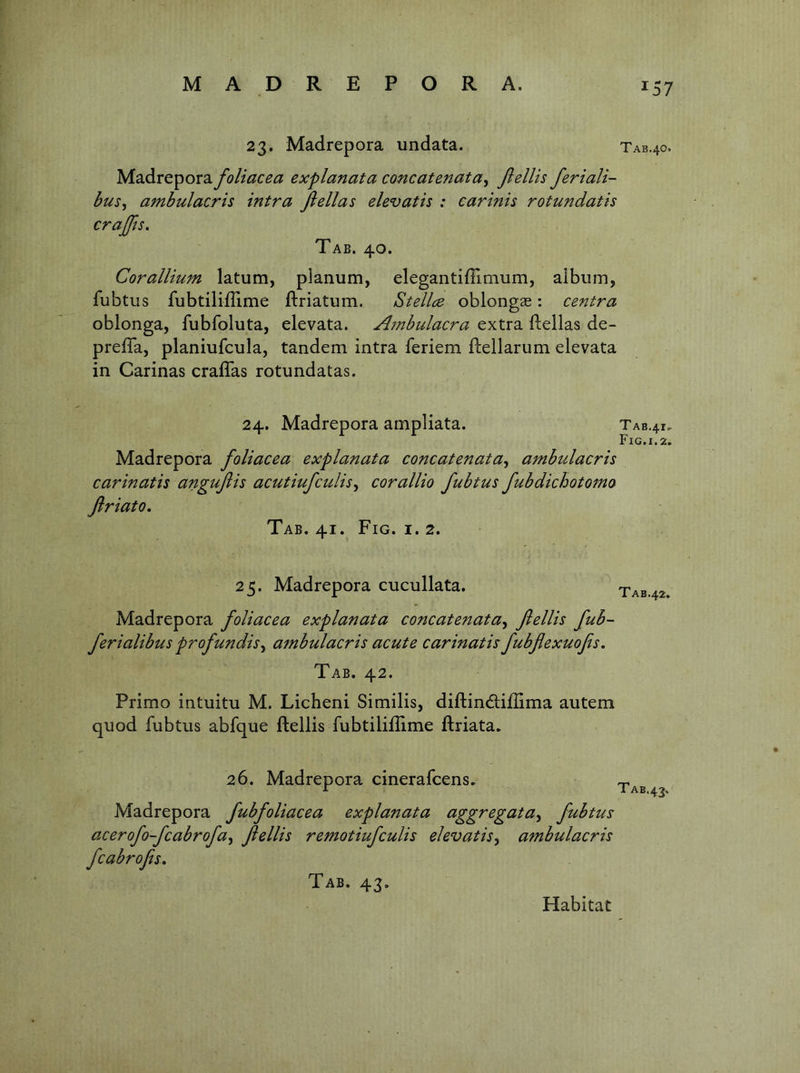 MADREPORA. 157
23. Madrepora undata. TAB.40.
Madrepora foliacea explanata concatenata, ſtellis ſeriali-
bus, ambulacris intra ſtellas elevatis : carinis rotundatis
craſſis.
TAB. 40.
Corallium latum, planum, elegantiſſimum, album,
ſubtus ſubtiliſſime ſtriatum. Stellæ oblongæ: centra
oblonga, ſubſoluta, elevata. Ambulacra extra ſtellas de-
preſſa, planiuſcula, tandem intra ſeriem ſtellarum elevata
in Carinas craſſas rotundatas.
24. Madrepora ampliata. TAB.41.
FIG.1.2.
Madrepora foliacea explanata concatenata, ambulacris
carinatis anguſtis acutiuſculis, corallio ſubtus ſubdichotomo
ſtriato.
TAB. 41. FIG. 1. 2.
25. Madrepora cucullata. TAB.42.
Madrepora foliacea explanata concatenata, ſtellis ſub-
ſerialibus profundis, ambulacris acute carinatis ſubflexuoſis.
TAB. 42.
Primo intuitu M. Licheni Similis, diſtinctiſſima autem
quod ſubtus abſque ſtellis ſubtiliſſime ſtriata.
26. Madrepora cineraſcens. TAB.43.
Madrepora ſubfoliacea explanata aggregata, ſubtus
aceroſo-ſcabroſa, ſtellis remotiuſculis elevatis, ambulacris
ſcabroſis.
TAB. 43.
Habitat